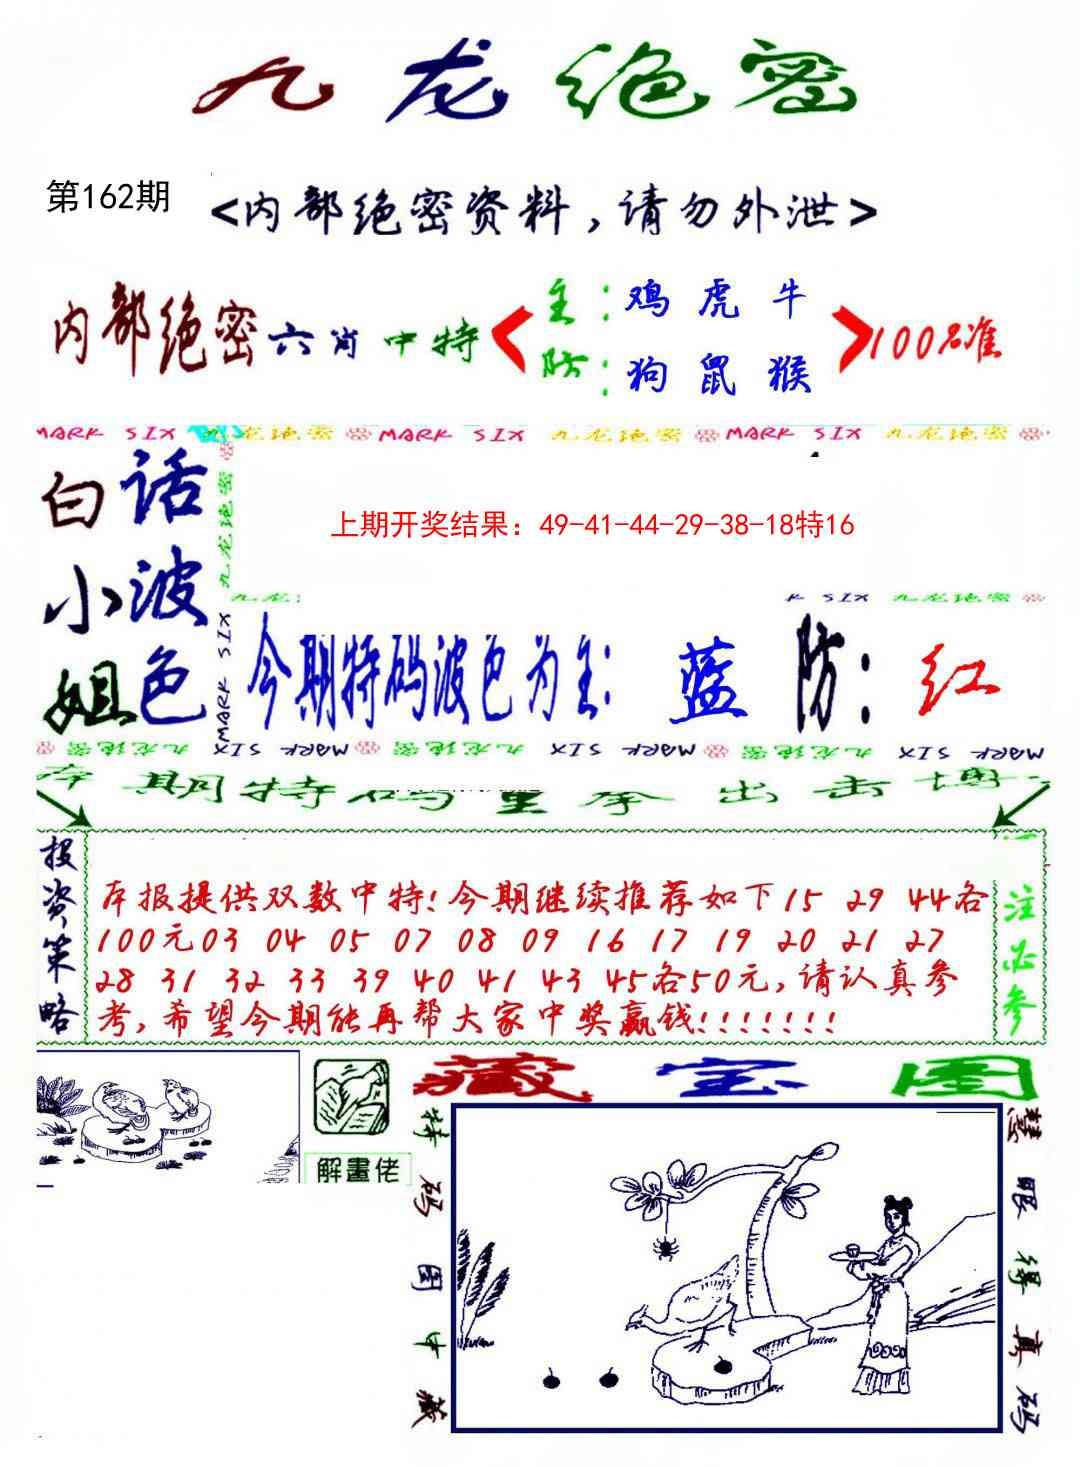 九龙绝密
第162期
<内部绝密资料,请勿外泄>
内部绝密六肖中特
主:鸡 虎 牛
防:狗 鼠 猴
100%准
MARK SIX 九龙绝密 MARK SIX 九龙绝密 MARK SIX 九龙绝密
白话
小波
姐色
九龙绝密
MARK SIX
上期开奖结果：49-41-44-29-38-18特16
九龙
K SIX 九龙绝密
今期特码波色为主: 蓝 防: 红
九龙绝密 MARK SIX 九龙绝密 MARK SIX 九龙绝密 MARK SIX
本期特码重拳出击博
投资策略
本报提供双数中特!今期继续推荐如下15 29 44各
100元03 04 05 07 08 09 16 17 19 20 21 27
28 31 32 33 39 40 41 43 45各50元,请认真参
考,希望今期能再帮大家中奖赢钱!!!!!!!
注必参
解畫佬
藏宝图
特码图中藏
慧眼得真码